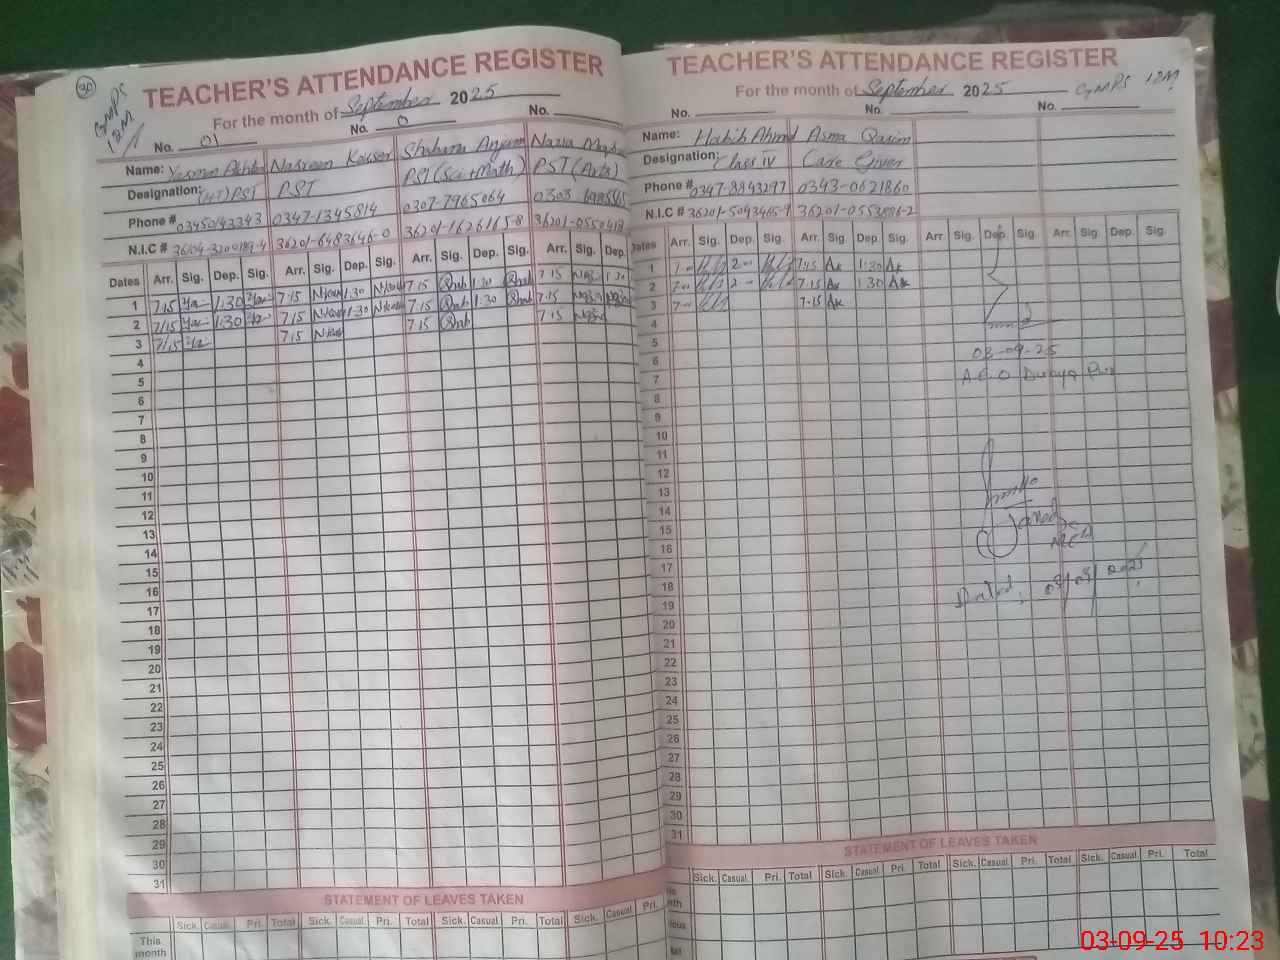 GMPS
12M
TEACHER'S ATTENDANCE REGISTER
For the month of September 2025
No. 01 No. 0 No.
Name: Yasmin Akhtar Nasreen Kousar Shabana Anjum Nazia
Designation: (HT) PST PST PST (Sci+Math) PST (Arts)
Phone # 03450143343 0347-1345814 0307-7965064 0303
N.I.C # 36201-6483646-0 36201-1626165-8
Dates Arr. Sig. Dep. Sig. Arr. Sig. Dep. Sig. Arr. Sig. Dep. Sig. Arr. Sig. Dep.
1 7:15 1:30 7:15 1:30 7:15 1:30 7:15 1:30
2 7:15 1:30 7:15 1:30 7:15 1:30 7:15
3 7:15 7:15 7:15 7:15
4
5
6
7
8
9
10
11
12
13
14
15
16
17
18
19
20
21
22
23
24
25
26
27
28
29
30
31
STATEMENT OF LEAVES TAKEN
Sick. Casual. Pri. Total Sick. Casual. Pri. Total Sick. Casual. Pri. Total Sick. Casual. Pri.
This
month
TEACHER'S ATTENDANCE REGISTER
For the month of September 2025 GMPS 12M
No. No. No.
Name: Habib Ahmd Asma Qasim
Designation: Class IV Care Giver
Phone # 0347-8843297 0343-0621860
N.I.C # 36201-5043465-9 36201-0553886-2
Dates Arr. Sig. Dep. Sig. Arr. Sig. Dep. Sig. Arr. Sig. Dep. Sig. Arr. Sig. Dep. Sig.
1 7:00 2:00 7:15 Ak 1:30 Ak
2 7:00 2:00 7:15 Ak 1:30 Ak
3 7:00 7:15 Ak
4
5
03-09-25
6
7
A.E.O Dunya Pur
8
9
10
11
12
13
14
15
16
17
18
Dated: 03/09/2025
19
20
21
22
23
24
25
26
27
28
29
30
31
STATEMENT OF LEAVES TAKEN
Sick. Casual. Pri. Total Sick. Casual. Pri. Total Sick. Casual. Pri. Total Sick. Casual. Pri. Total
03-09-25 10:23